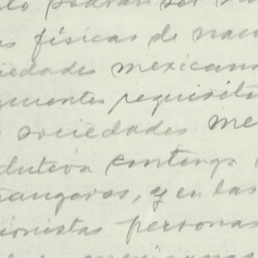 podrán ser
físicas de nac
iedades mexicana
guientes requisito
sociedades me
lutiva contenga
anjeros, y en las
ionistas personas